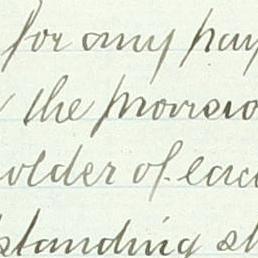 for any pay
the provisio
holder of eac
standing sh